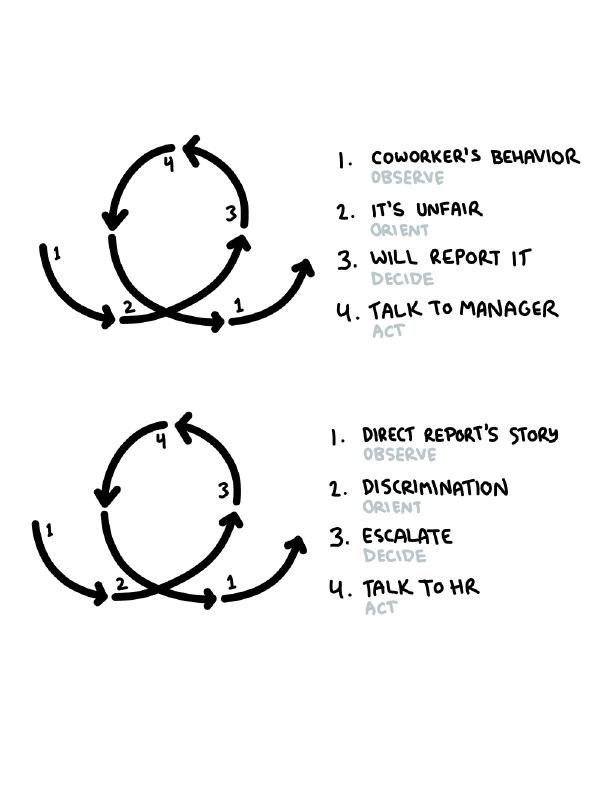 4
3
1
2
1
1. COWORKER'S BEHAVIOR
OBSERVE
2. IT'S UNFAIR
ORIENT
3. WILL REPORT IT
DECIDE
4. TALK TO MANAGER
ACT
4
3
1
2
1
1. DIRECT REPORT'S STORY
OBSERVE
2. DISCRIMINATION
ORIENT
3. ESCALATE
DECIDE
4. TALK TO HR
ACT